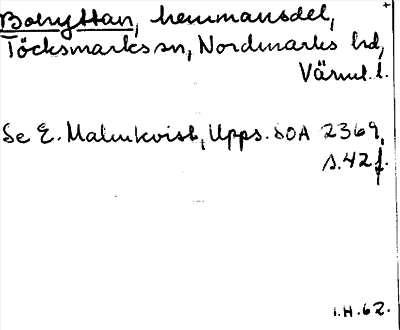 Bohyttan, hemmansdel,
Töcksmarks sn, Nordmarks hd,
Värml. l.
Se E. Malmkvist, Upps. SOA 2369,
s. 42 f.
I.H. 62.